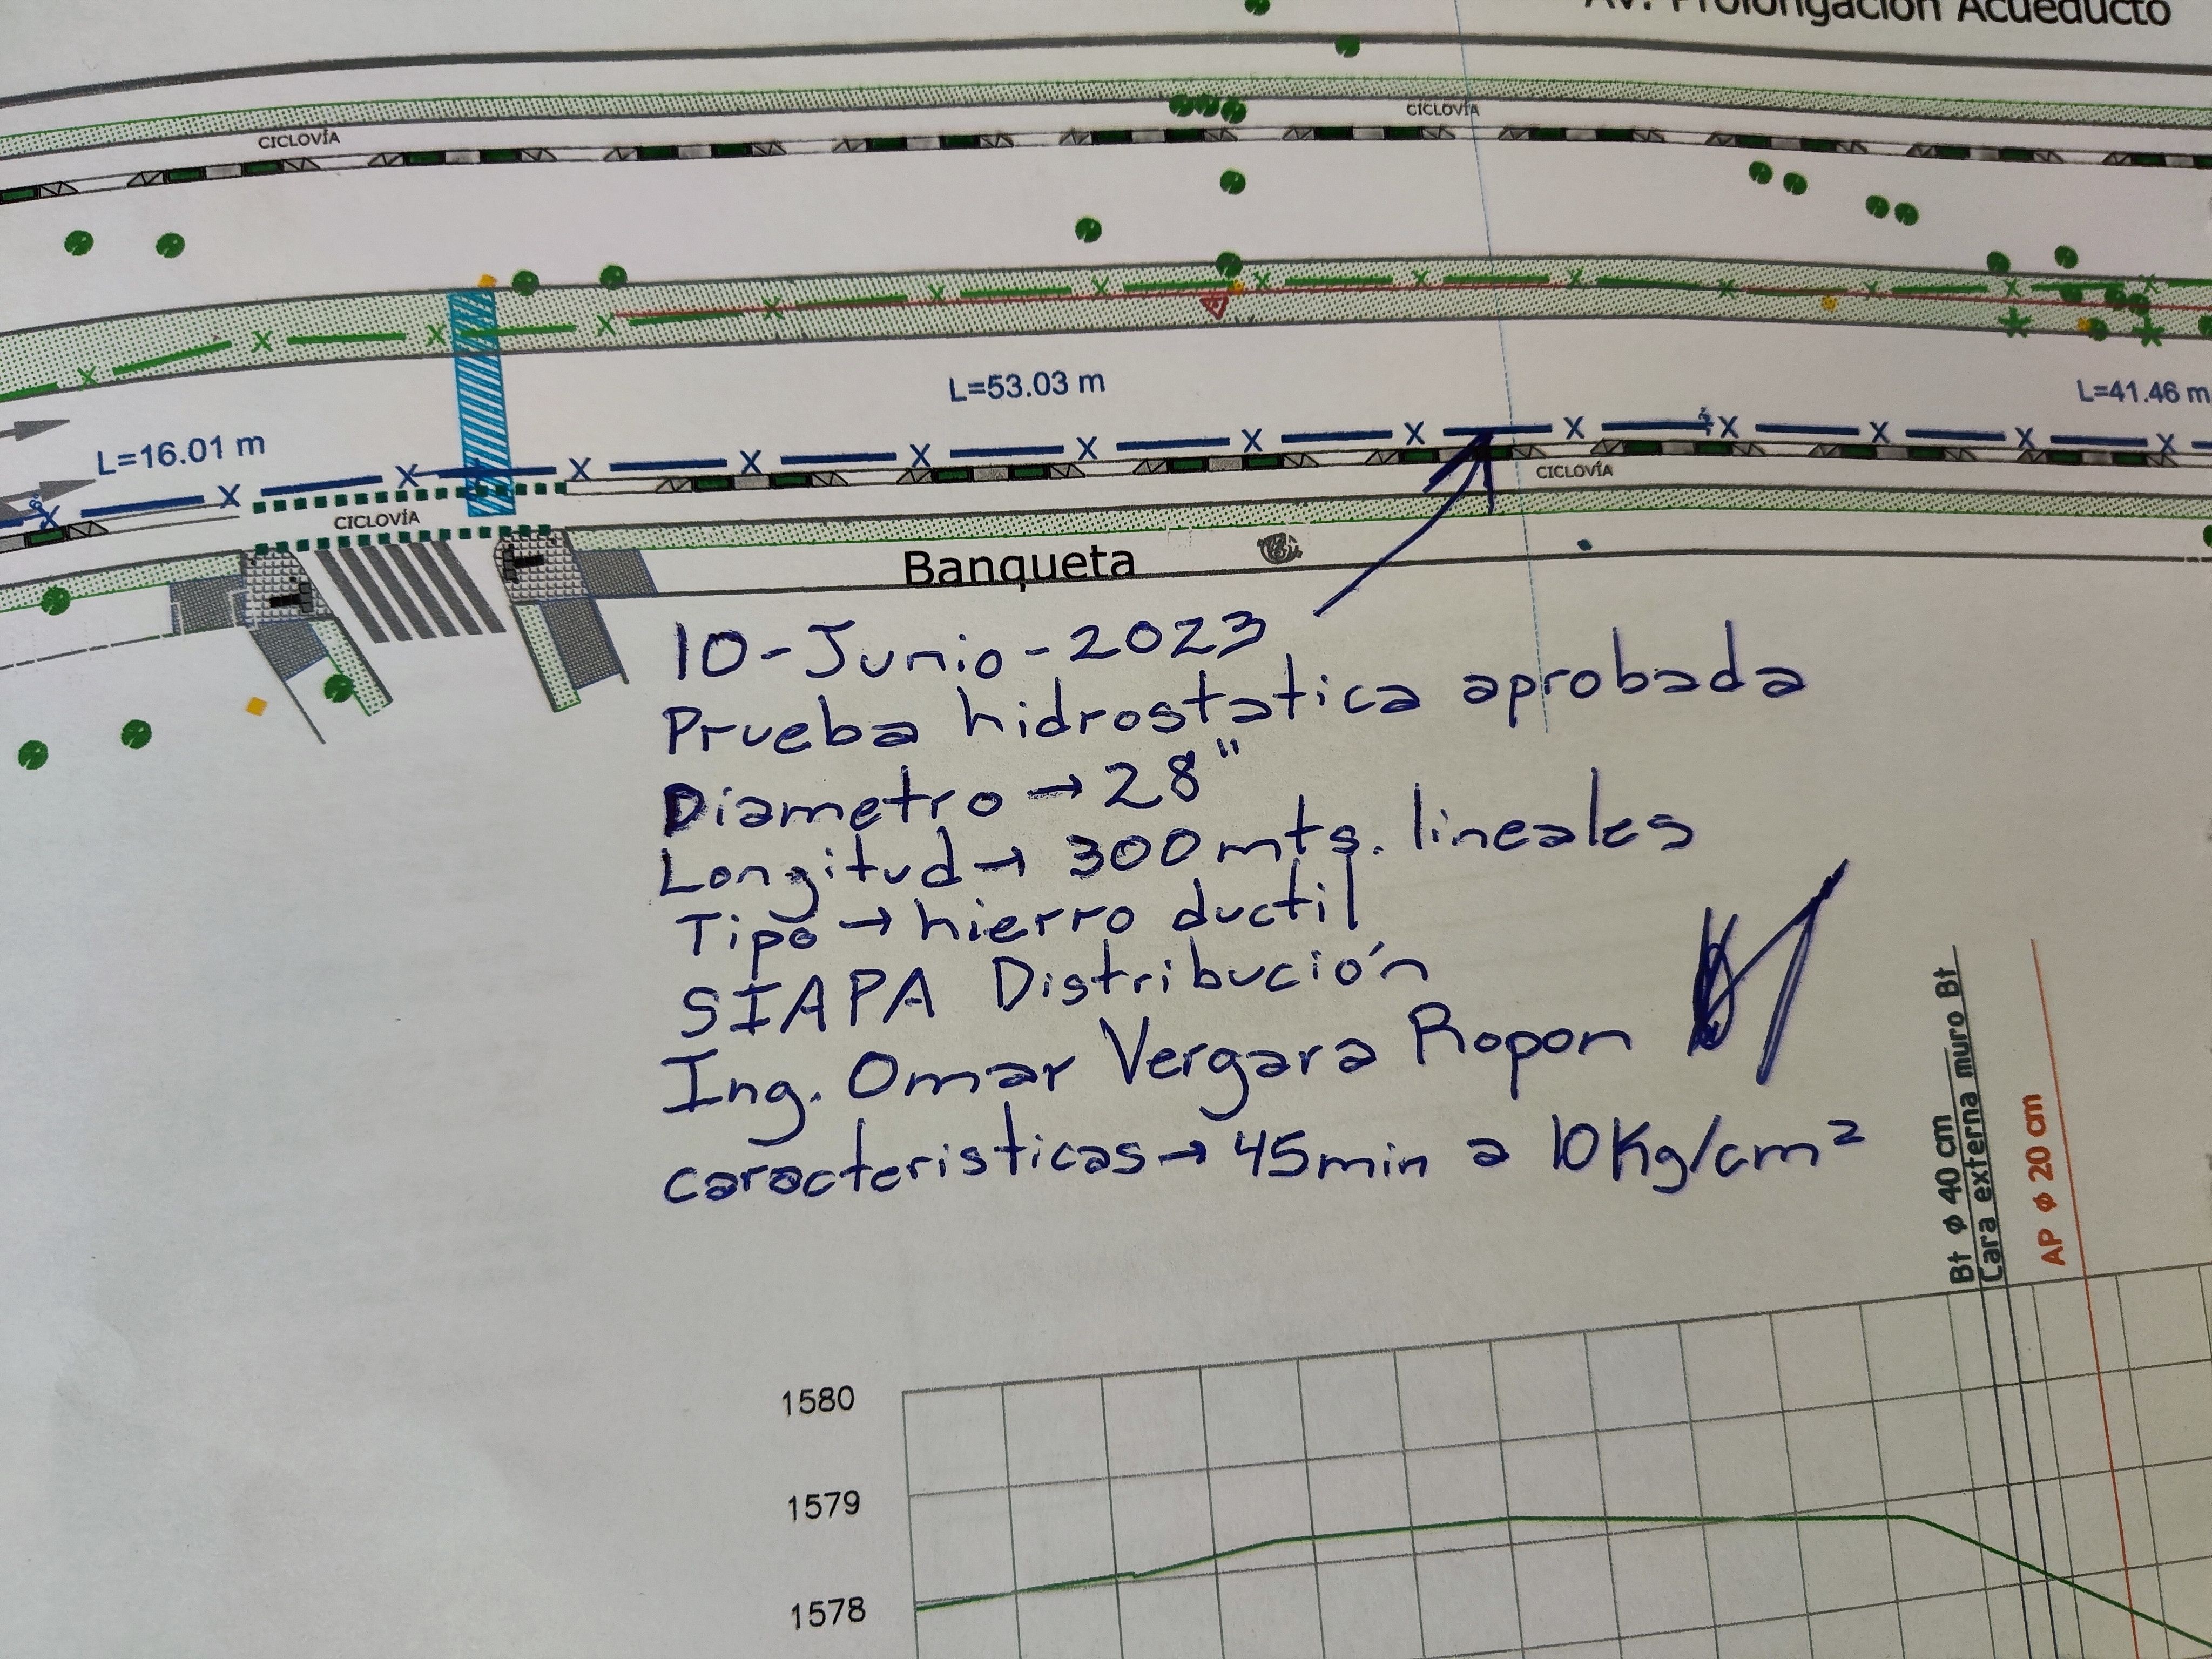 Av. Prolongación Acueducto
CICLOVÍA
CICLOVÍA
L=53.03 m
L=41.46 m
L=16.01 m
CICLOVÍA
CICLOVÍA
Banqueta
10-Junio-2023
Prueba hidrostatica aprobada
Diametro → 28"
Longitud → 300 mts. lineales
Tipo → hierro ductil
SIAPA Distribución
Ing. Omar Vergara Ropon
caracteristicas → 45min a 10Kg/cm²
Bt ϕ 40 cm
Cara externa muro Bt
AP ϕ 20 cm
1580
1579
1578